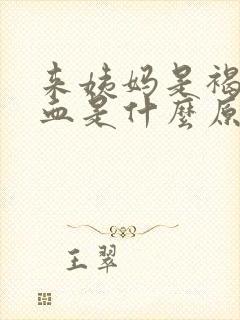 来姨妈是褐
血是什麼原
王翠